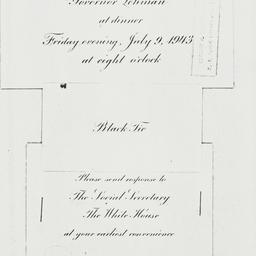 Governor Lehman
at dinner
Friday evening, July 9, 1943
at eight o'clock
Black Tie
Please send response to
The Social Secretary
The White House
at your earliest convenience